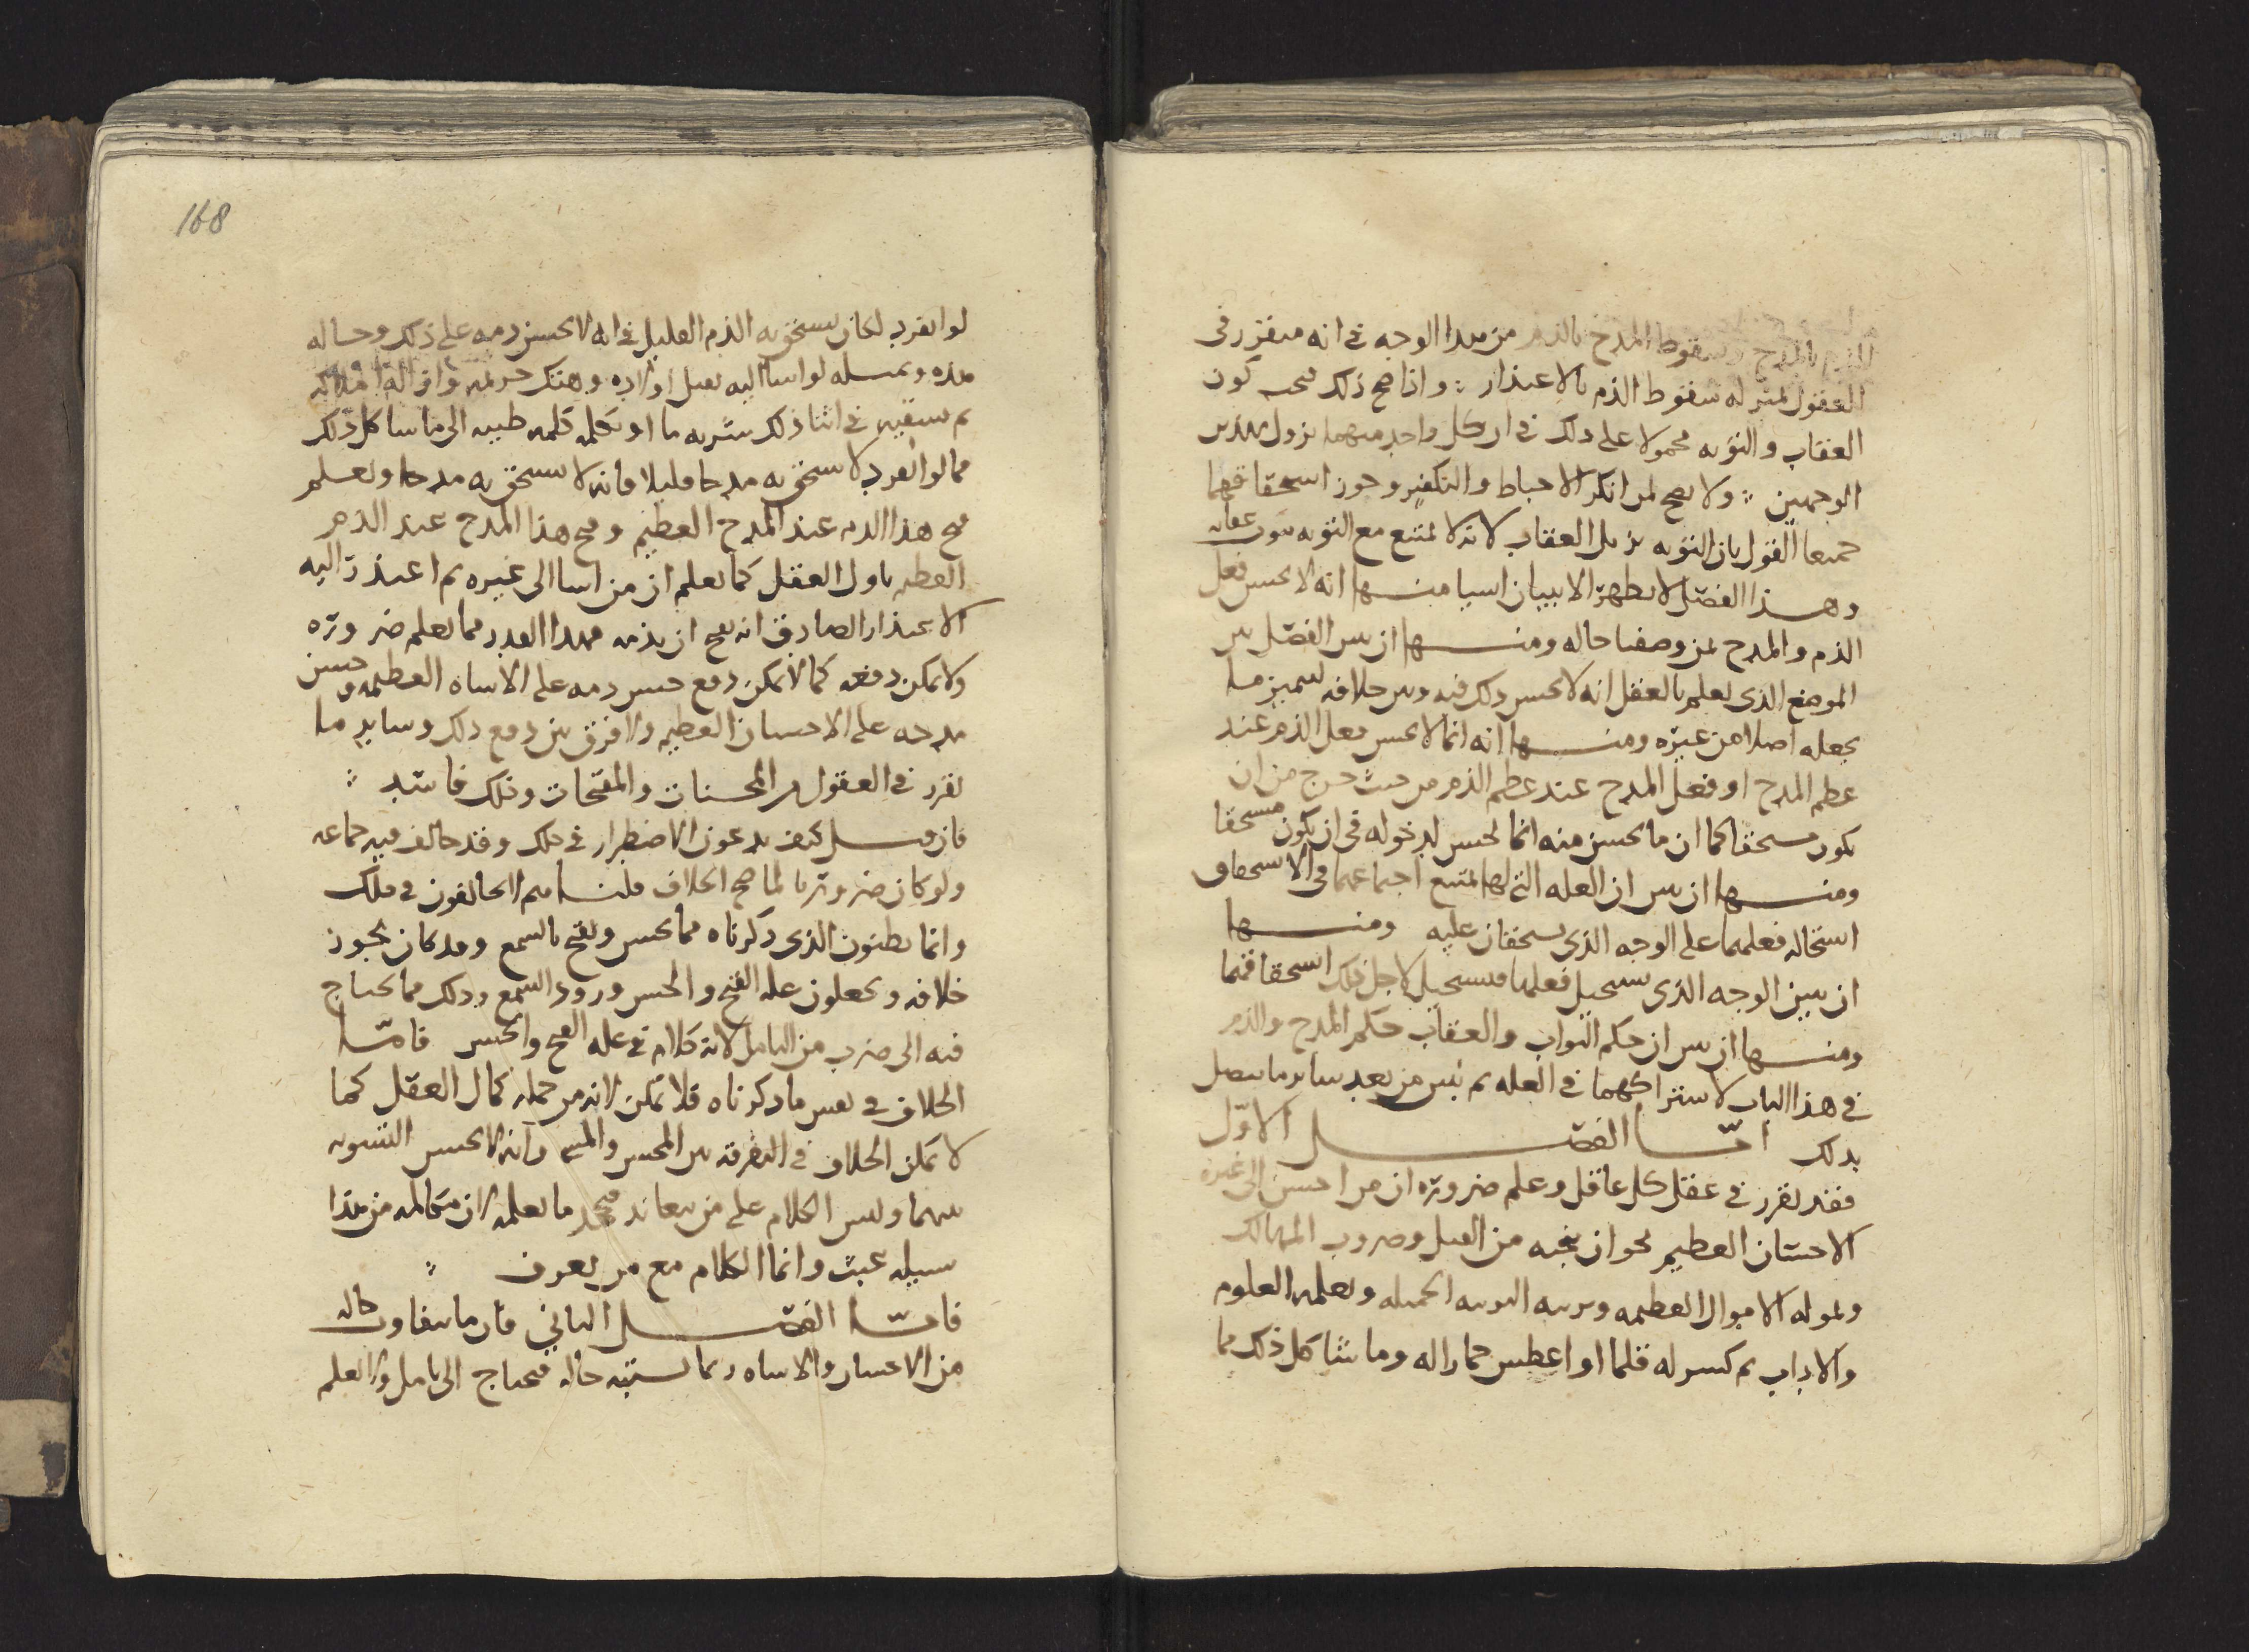 الذم بالمدح وسقوط المدح بالذم من هذا الوجه في انه متقرر في
العقول بمنزله سقوط الذم بالاعتذار ۞ واذا صح ذلك فيجب كون
العقاب والتوبه محمولا على ذلك في ان كل واحد منهما يزول بهذين
الوجهين ۞ ولا يصح لمن انكر الاحباط والتكفير وجوز استحقاقهما
جميعا القول بان التوبه تزيل العقاب لانه لا يمتنع مع التوبه ثبوت عقابه
وهذا الفصل لا يظهر الا ببيان اشيا منها انه لا يحسن فعل
الذم والمدح لمن وصفنا حاله ومنها ان نبين الفصل بين
الموضع الذي يعلم بالعقل انه لا يحسن ذلك فيه وبين خلافه ليتميز ما
نجعله اصلا من غيره ومنها انه انما لا يحسن فعل الذم عند
عظم المدح او فعل المدح عند عظم الذم من حيث خرج من ان
يكون مستحقا كما ان ما يحسن منه انما يحسن لدخوله في ان يكون مستحقا
ومنها ان نبين ان العله التي لها يمتنع اجتماعهما في الاستحقاق
استحاله فعلهما على الوجه الذي يستحقان عليه ومنها
ان نبين الوجه الذي يستحيل فعلهما فيستحيل لاجل ذلك استحقاقهما
ومنها ان نبين ان حكم الثواب والعقاب حكم المدح والذم
في هذا الباب لاشتراكهما في العله ثم نبين من بعد سائر ما يتصل
بذلك اما الفصل الاول
فقد تقرر في عقل كل عاقل وعلم ضروره ان من احسن الى غيره
الاحسان العظيم نحو ان ينجيه من القتل وضروب المهالك
وتموله الاموال العظيمه وتربيه التربيه الجميله وتعلمه العلوم
والاداب ثم كسر له قلما او اعطس حمارا له وما شاكل ذلك مما
168
لو انفرد لكان يستحق به الذم القليل في انه لا يحسن ذمه على ذلك وحاله
هذه وبمثله لو اسا اليه بقتل اولاده وهتك حرمه وازاله املاكه
ثم سقيه في اثنا ذلك شربه ما او تكلمه كلمه طيبه الى ما شاكل ذلك
مما لو انفرد لاستحق به مدحا قليلا فانه لا يستحق به مدحا ونعلم
قبح هذا الذم عند المدح العظيم وقبح هذا المدح عند الذم
العظيم باول العقل كما نعلم ان من اسا الى غيره ثم اعتذر اليه
الاعتذار الصادق انه يقبح ان يذمه فهذا القدر مما يعلم ضروره
ولا يمكن دفعه كما لا يمكن دفع حسن ذمه على الاساه العظيمه وحسن
مدحه على الاحسان العظيم ولا فرق بين دفع ذلك وساير ما
تقرر في العقول من المحسنات والمقبحات وذلك فاسد ۞
فان قيل كيف يدعون الاضطرار في ذلك وقد خالف فيه جماعه
ولو كان ضروريا لما صح الخلاف قلنا هم الخالفون في ذلك
وانما يظنون الذي ذكرناه مما يحسن ويقبح بالسمع وقد كان يجوز
خلافه ويجعلون عله القبح والحسن ورود السمع وذلك مما يحتاج
فيه الى ضرب من التامل لانه كلام في عله القبح والحسن فاما
الخلاف في نفس ما ذكرناه فلا يمكن لانه من جمله كمال العقل كما
لا يمكن الخلاف في التفرقه بين المحسن والمسي وانه لا يحسن التسويه
بينهما وليس الكلام على من يعاند فيجحد ما يعلمه لان مكالمه من هذا
سبيله عبث وانما الكلام مع من يعرف ۞
فاما الفصل الثاني فان ما يتفاوت حاله
من الاحسان والاساه ربما يشتبه حاله فيحتاج الى تامل والعلم